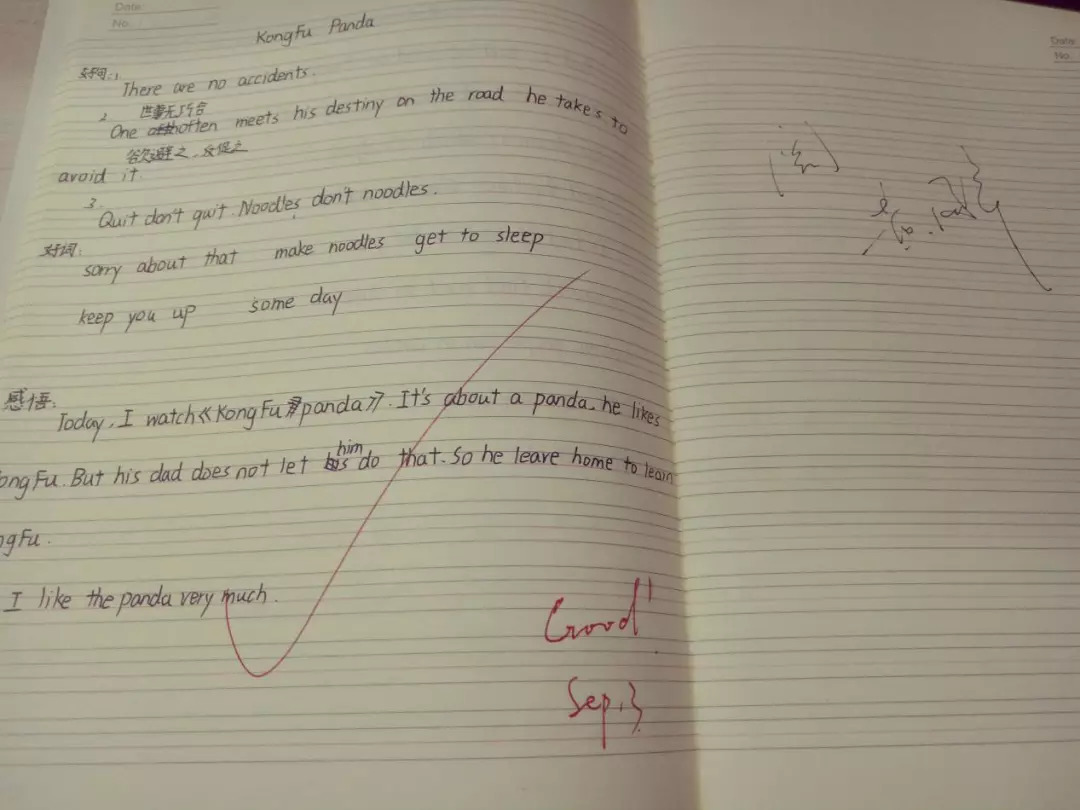 Date
No.
KongFu Panda
好句:1
There are no accidents.
世事无巧合
2
One often meets his destiny on the road he takes to
欲避之,反促之
avoid it.
3.
Quit don't quit. Noodles don't noodles.
好词:
sorry about that make noodles get to sleep
keep you up some day
感悟:
Today, I watch《KongFu panda》. It's about a panda, he likes
ongFu. But his dad does not let him do that. So he leave home to learn
ngFu.
I like the panda very much.
Good!
Sep.3
Date
No.